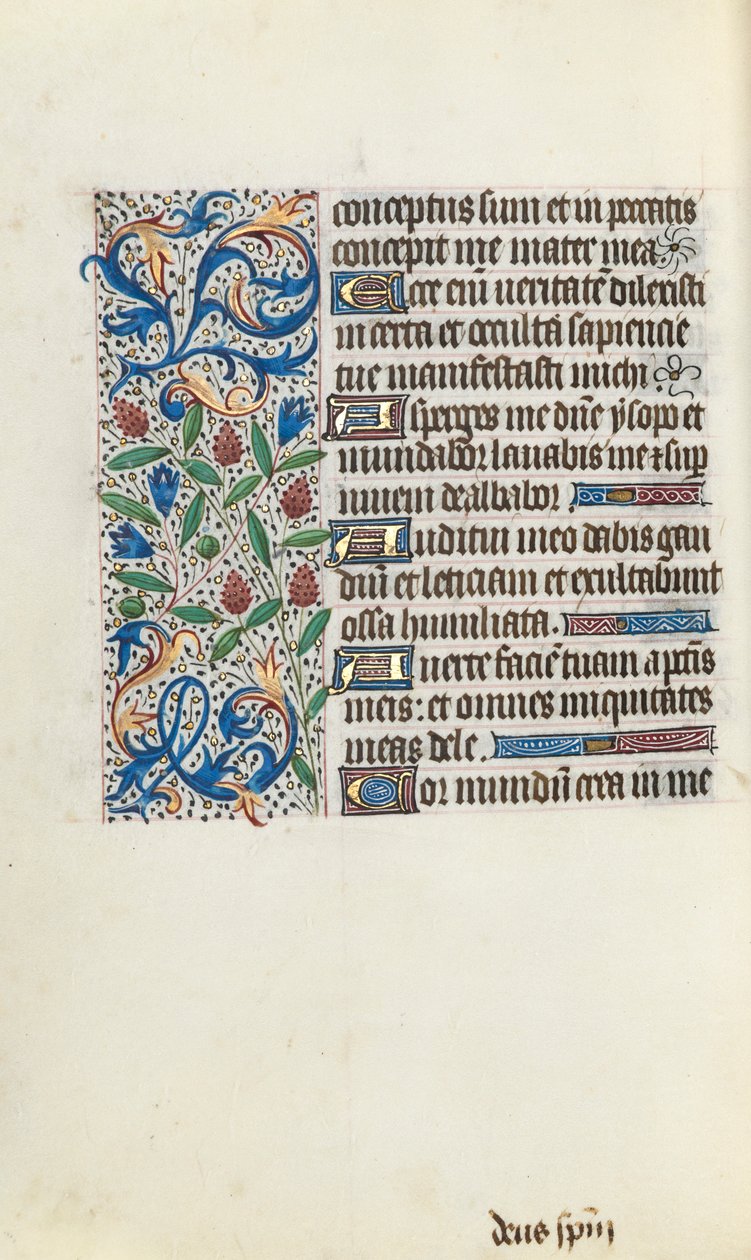 conceptus sum et in peccatis
concepit me mater mea
Ecce eni̅ veritate̅ dilexisti
incerta et occulta sapiencie
tue manifestasti michi
Asperges me dn̅e ysopo et
mundabor lavabis me ⁊ sup̅
nivem dealbabor.
Auditui meo dabis gau
diu̅ et leticiam et exultabunt
ossa humiliata.
Averte facie̅ tuam a pcc̅is
meis: et omnes iniquitates
meas dele.
Cor mundu̅ crea in me
deus spm̅